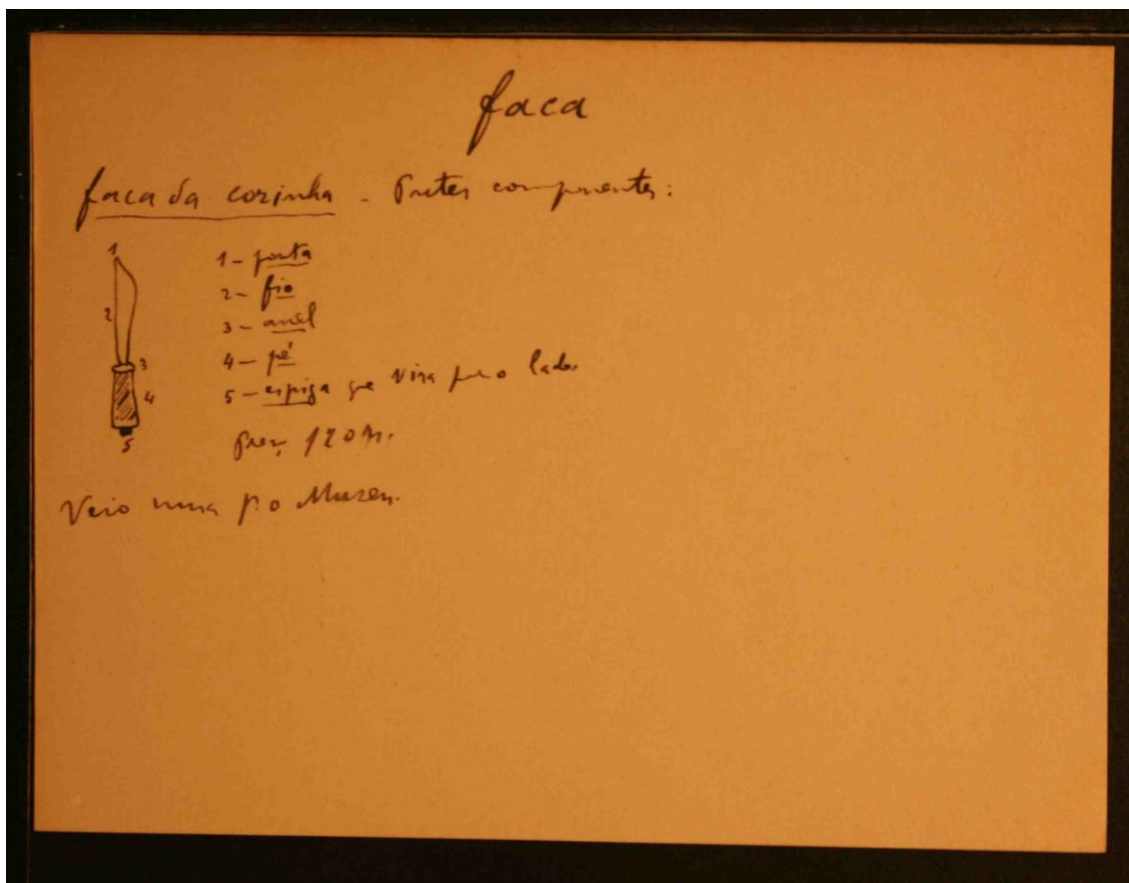 faca
faca da cozinha - Partes componentes:
1
1 - ponta
2
2 - fio
3 - anel
3
4 - pé
4
5 - espiga que vira para o lado
5
Preço 120
Veio uma p.o Museu.